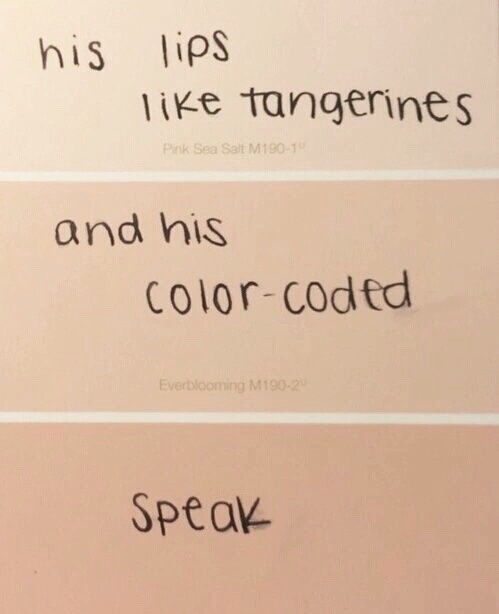 his lips
like tangerines
Pink Sea Salt M190-1U
and his
color-coded
Everblooming M190-2U
speak